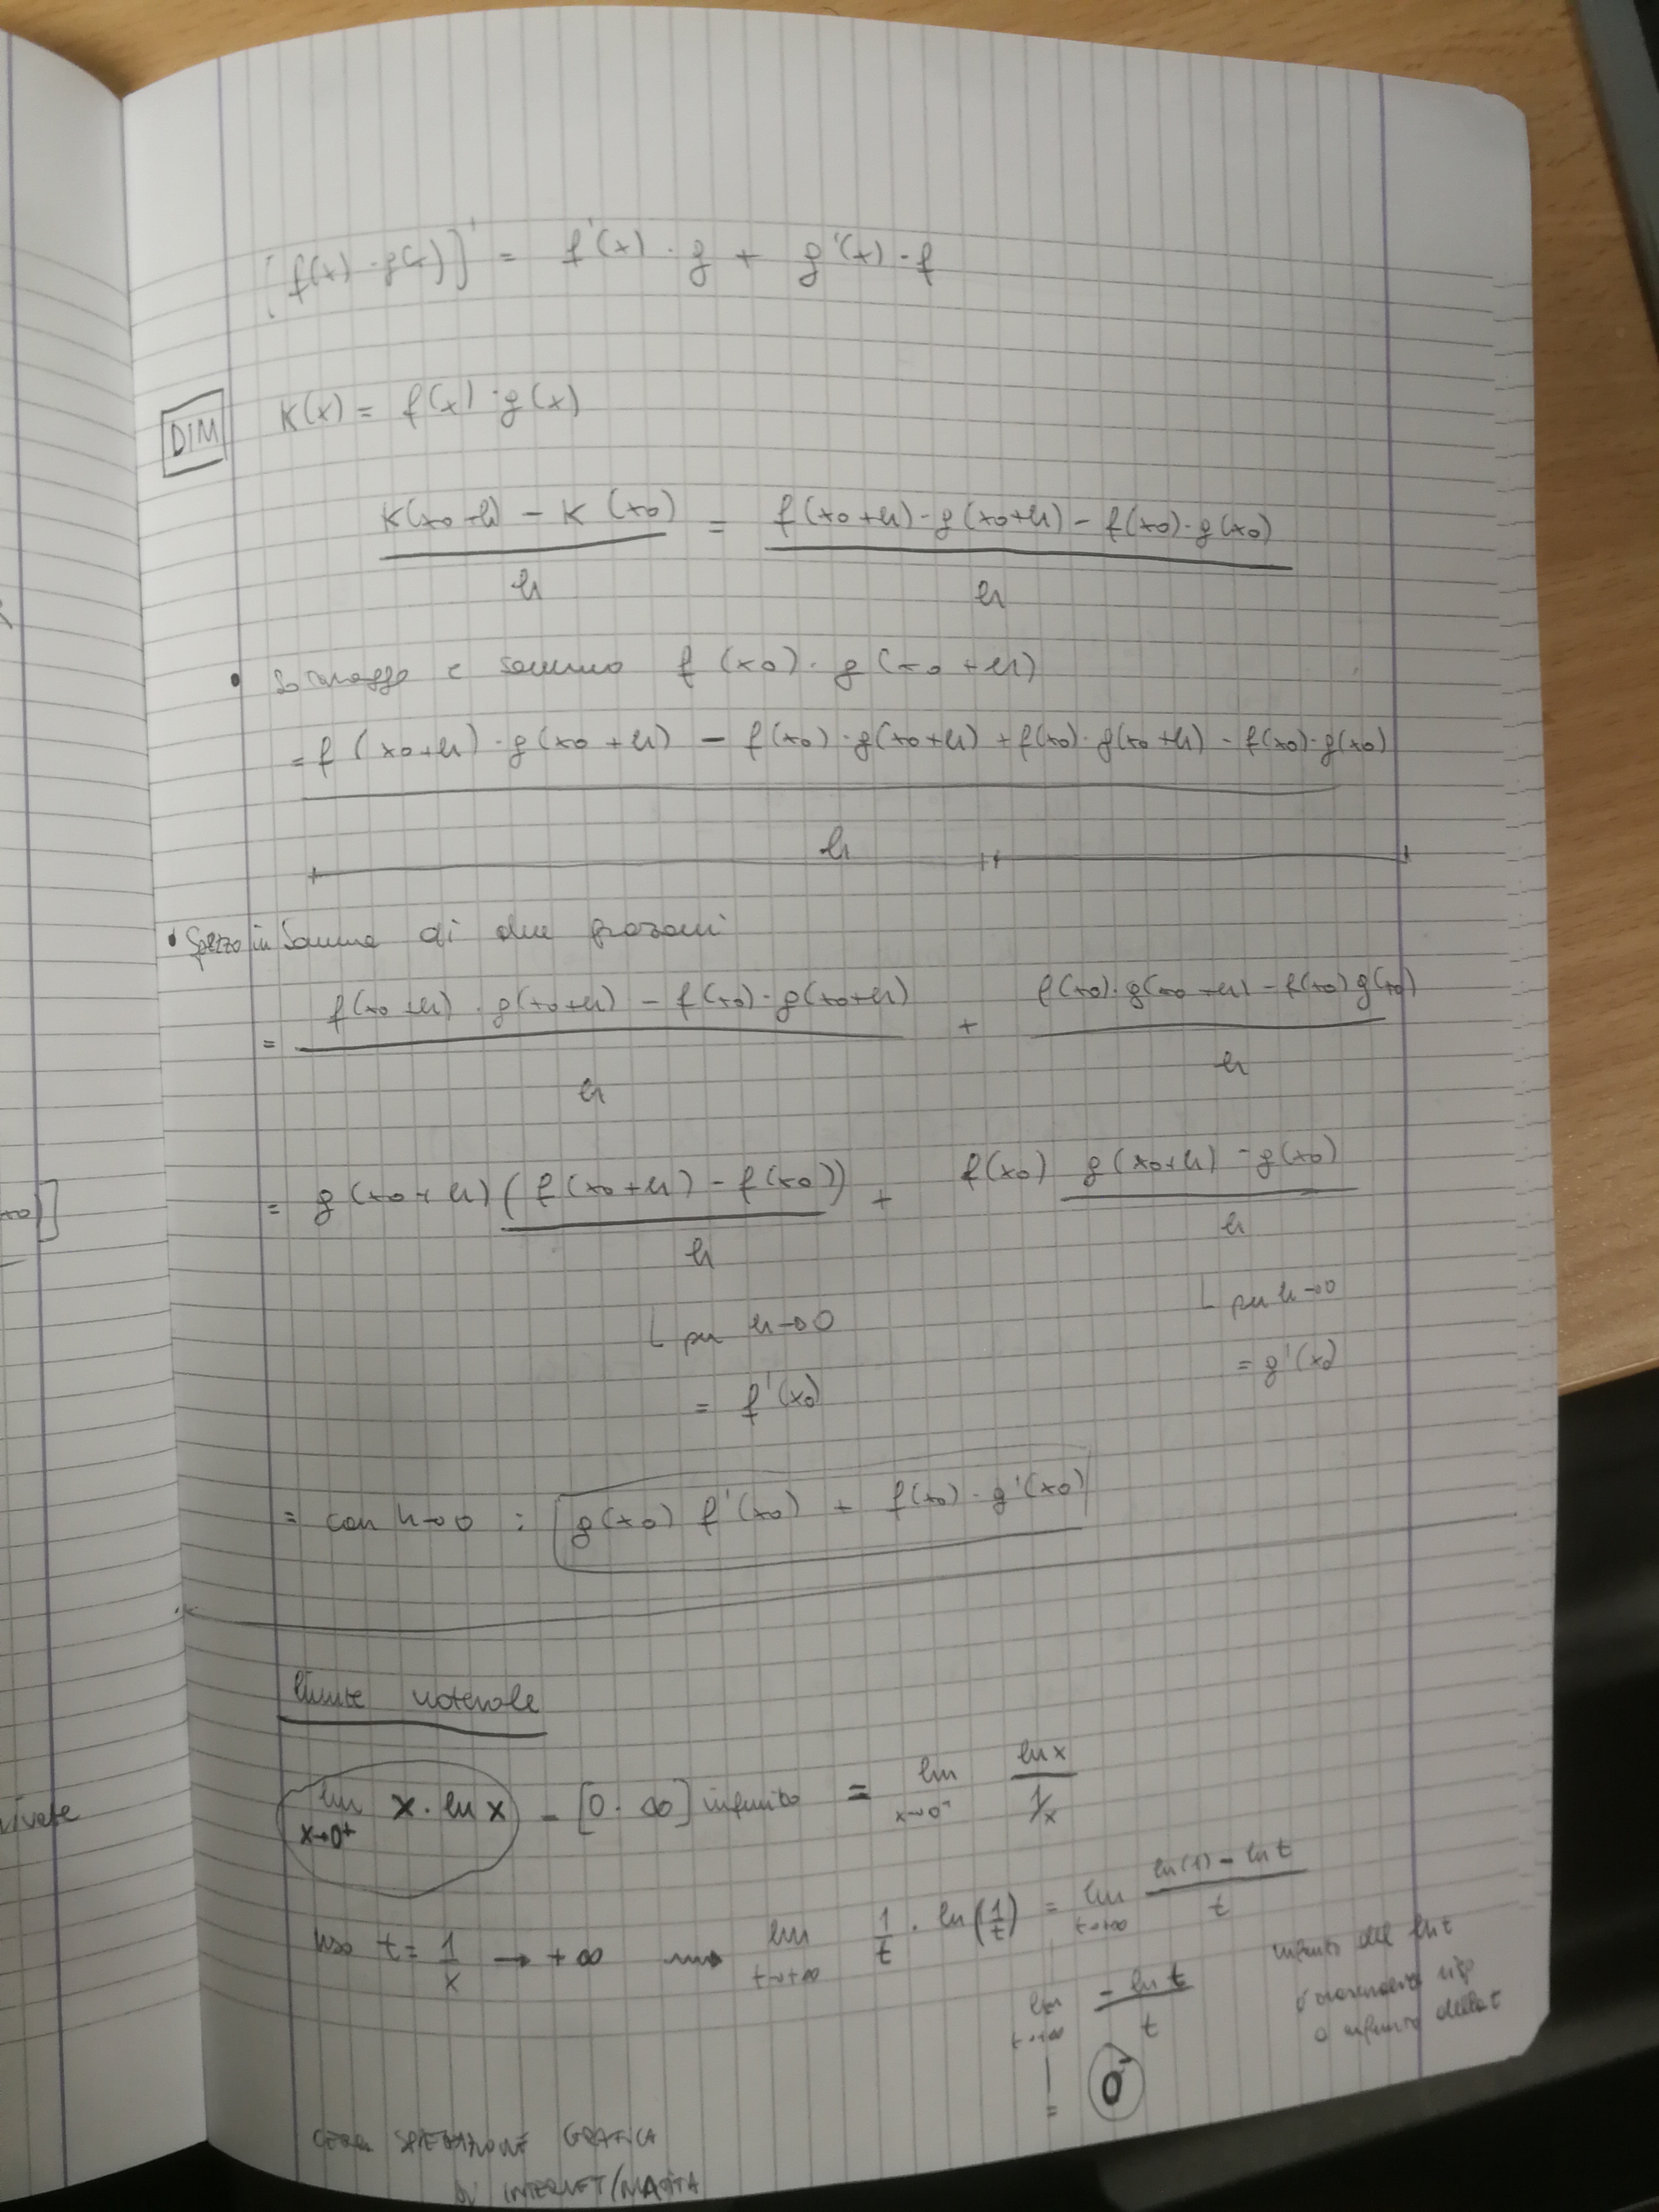 [f(x) · g(x)]' = f'(x) · g + g'(x) · f
DIM K(x) = f(x) · g(x)
K(x0+h) - K(x0) / h = f(x0+h) · g(x0+h) - f(x0) · g(x0) / h
• Sottraggo e sommo f(x0) · g(x0+h)
= f(x0+h) · g(x0+h) - f(x0) · g(x0+h) + f(x0) · g(x0+h) - f(x0) · g(x0)
h
• Spezzo in somma di due frazioni
= f(x0+h) · g(x0+h) - f(x0) · g(x0+h) / h + f(x0) · g(x0+h) - f(x0) g(x0) / h
= g(x0+h) (f(x0+h) - f(x0)) / h + f(x0) g(x0+h) - g(x0) / h
per h→0 per h→0
= f'(x0) = g'(x0)
= con h→0 : g(x0) f'(x0) + f(x0) · g'(x0)
limite notevole
lim x→0+ x · ln x = [0 · ∞] infinito = lim x→0+ ln x / 1/x
uso t = 1/x → +∞ lim t→+∞ 1/t · ln(1/t) = lim t→+∞ ln(1) - ln t / t
lim t→+∞ - ln t / t
infinito del ln t
o infinito della t
= 0-
SPIEGAZIONE GRAFICA
INTERNET/
x0)]